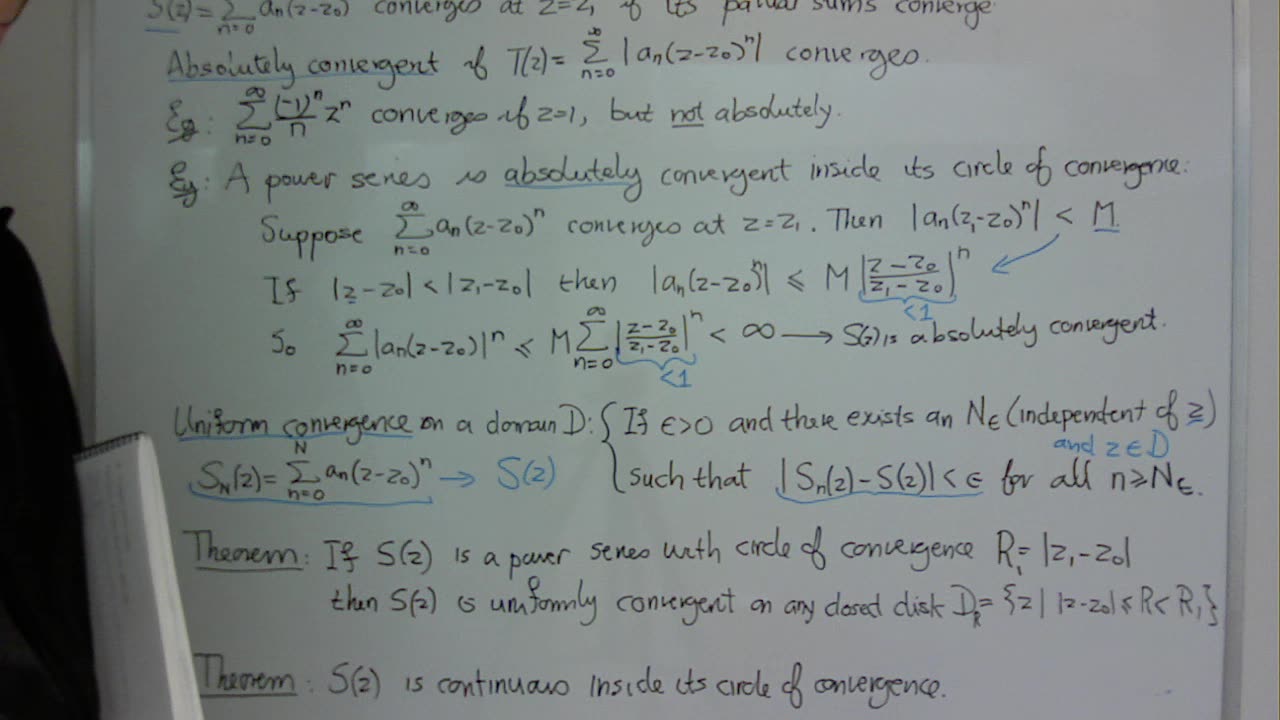 S(z) = ∑_{n=0} a_n(z-z_0) converges at z=z_1 if its partial sums converge
Absolutely convergent if T(z) = ∑_{n=0}^∞ |a_n(z-z_0)^n| converges.
Eg: ∑_{n=0}^∞ (-1)^n/n z^n converges if z=1, but not absolutely.
Eg: A power series is absolutely convergent inside its circle of convergence:
Suppose ∑_{n=0}^∞ a_n(z-z_0)^n converges at z=z_1. Then |a_n(z_1-z_0)^n| < M
If |z-z_0| < |z_1-z_0| then |a_n(z-z_0)^n| ≤ M |z-z_0/z_1-z_0|^n
<1
So ∑_{n=0}^∞ |a_n(z-z_0)|^n ≤ M ∑_{n=0}^∞ |z-z_0/z_1-z_0|^n < ∞ → S(z) is absolutely convergent.
<1
Uniform convergence on a domain D: { If ε>0 and there exists an N_ε (independent of z)
and z∈D
S_N(z) = ∑_{n=0}^N a_n(z-z_0)^n → S(z) such that |S_n(z)-S(z)| < ε for all n ≥ N_ε.
Theorem: If S(z) is a power series with circle of convergence R_1 = |z_1-z_0|
then S(z) is uniformly convergent on any closed disk D_R = {z | |z-z_0| ≤ R < R_1}
Theorem: S(z) is continuous inside its circle of convergence.